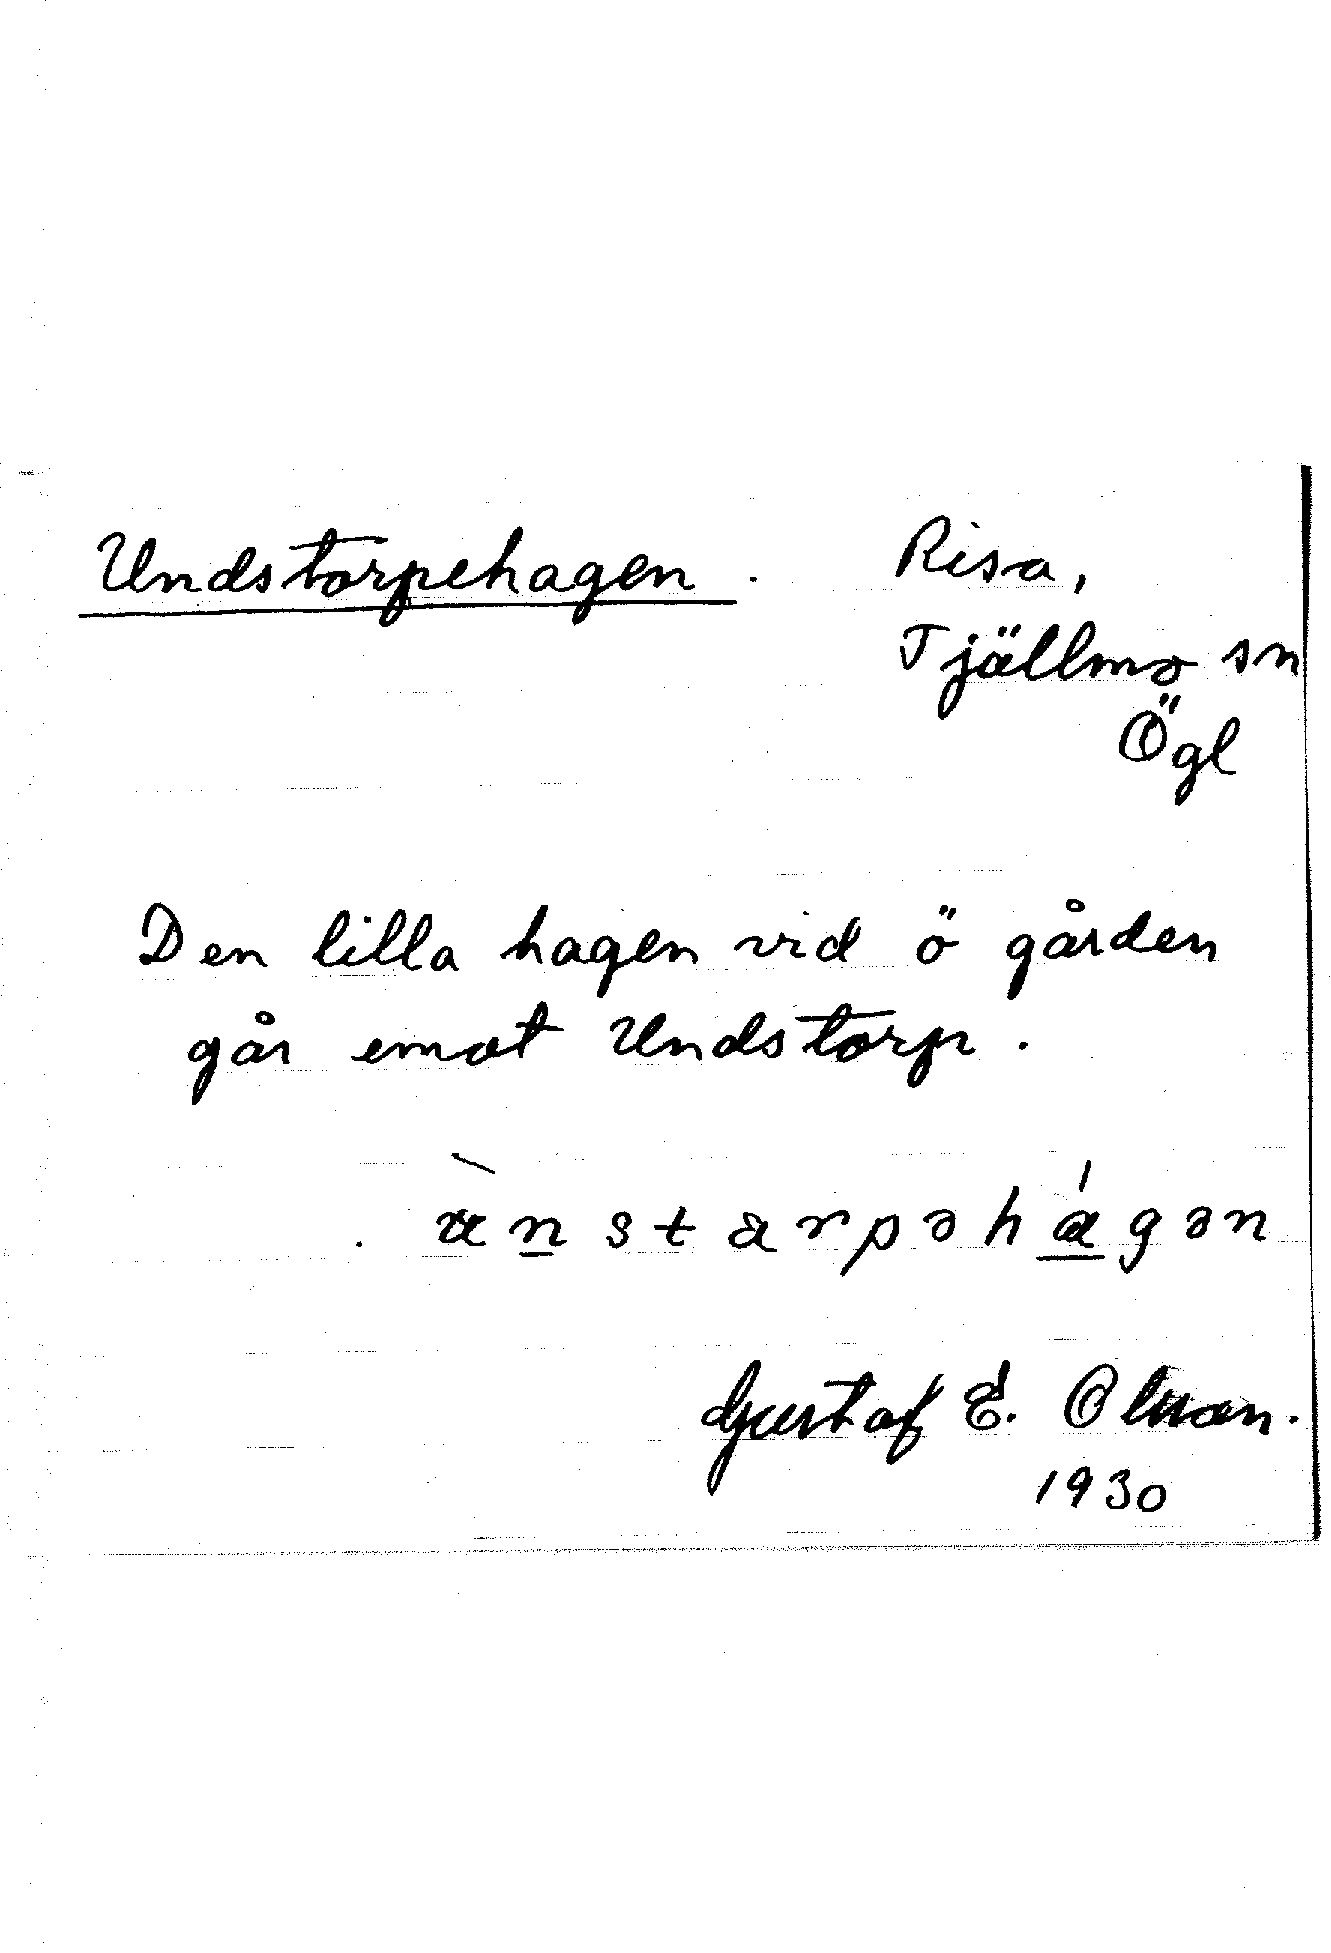 Undstorpehagen. Risa,
Tjällmo sn
Ögl
Den lilla hagen vid ö gården
går emot Undstorp.
Gustaf E. Olsson.
1930